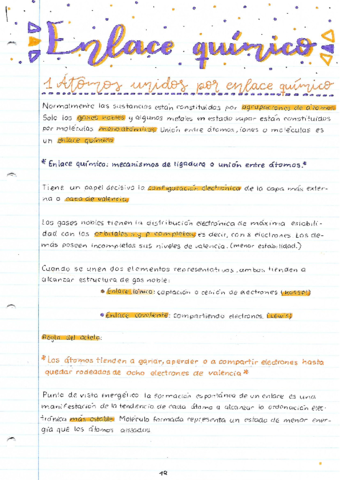 Enlace químico
1 Átomos unidos por enlace químico
Normalmente las sustancias están constituidas por agrupaciones de átomos
Solo los gases nobles y algunos metales en estado vapor están constituidos
por moléculas monoatómicas. Unión entre átomos, iones o moléculas es
un enlace químico
*Enlace químico: mecanismos de ligadura o unión entre átomos.*
Tiene un papel decisivo la configuración electrónica de la capa más exter-
na o capa de valencia
Los gases nobles tienen la distribución electrónica de máxima estabili-
dad con los orbitales s y p completos es decir, con 8 electrones. Los de-
más poseen incompletos sus niveles de valencia. (menor estabilidad.)
Cuando se unen dos elementos representativos, ambos tienden a
alcanzar estructura de gas noble:
* Enlace iónico: captación o cesión de electrones (Kossel)
* Enlace covalente: compartiendo electrones (Lewis)
Regla del octeto:
*Los átomos tienden a ganar, a perder o a compartir electrones hasta
quedar rodeados de ocho electrones de valencia*
Punto de vista energético la formación espontánea de un enlace es una
manifestación de la tendencia de cada átomo a alcanzar la ordenación elec-
trónica más estable. Molécula formada representa un estado de menor ener-
gía que los átomos aislados.